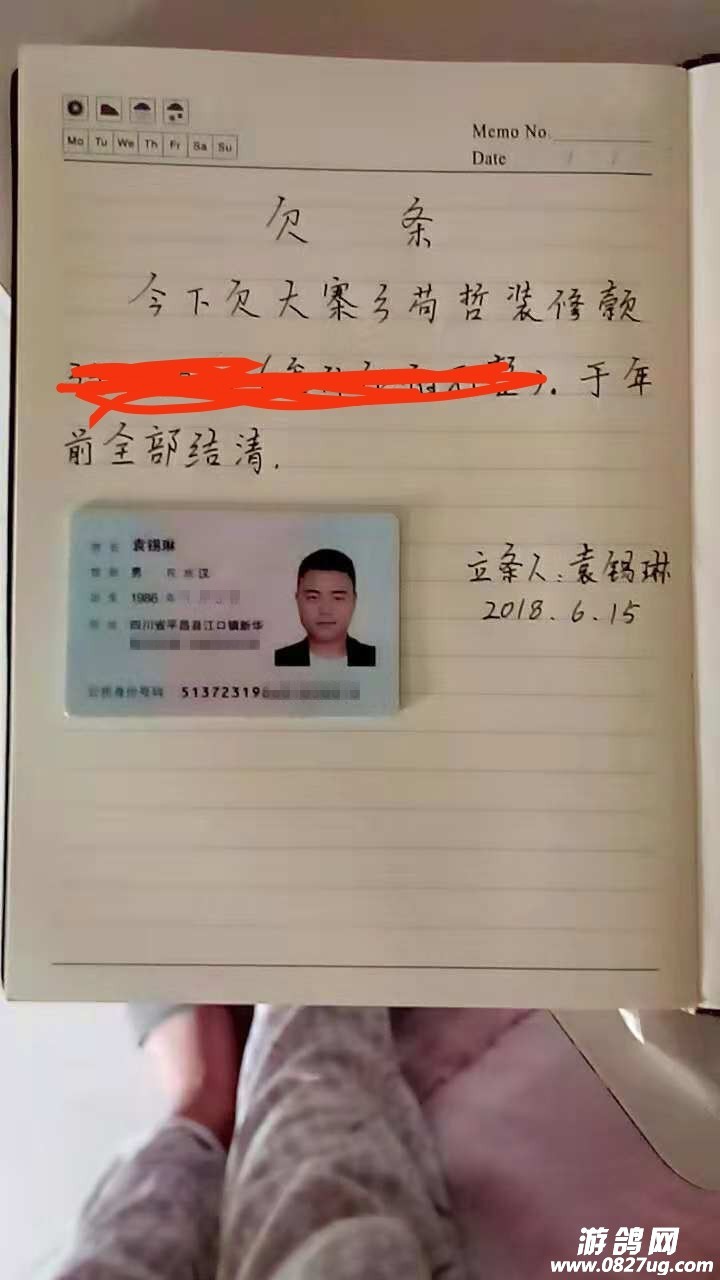 Mo Tu We Th Fr Sa Su
Memo No.
Date / /
欠 条
今下欠大寨乡苟哲装修款
于年
前全部结清.
姓名 袁锡琳
性别 男 民族 汉
出生 1986 年
住址 四川省平昌县江口镇新华
公民身份号码 51372319
立条人:袁锡琳
2018.6.15
游鸽网
www.0827ug.com